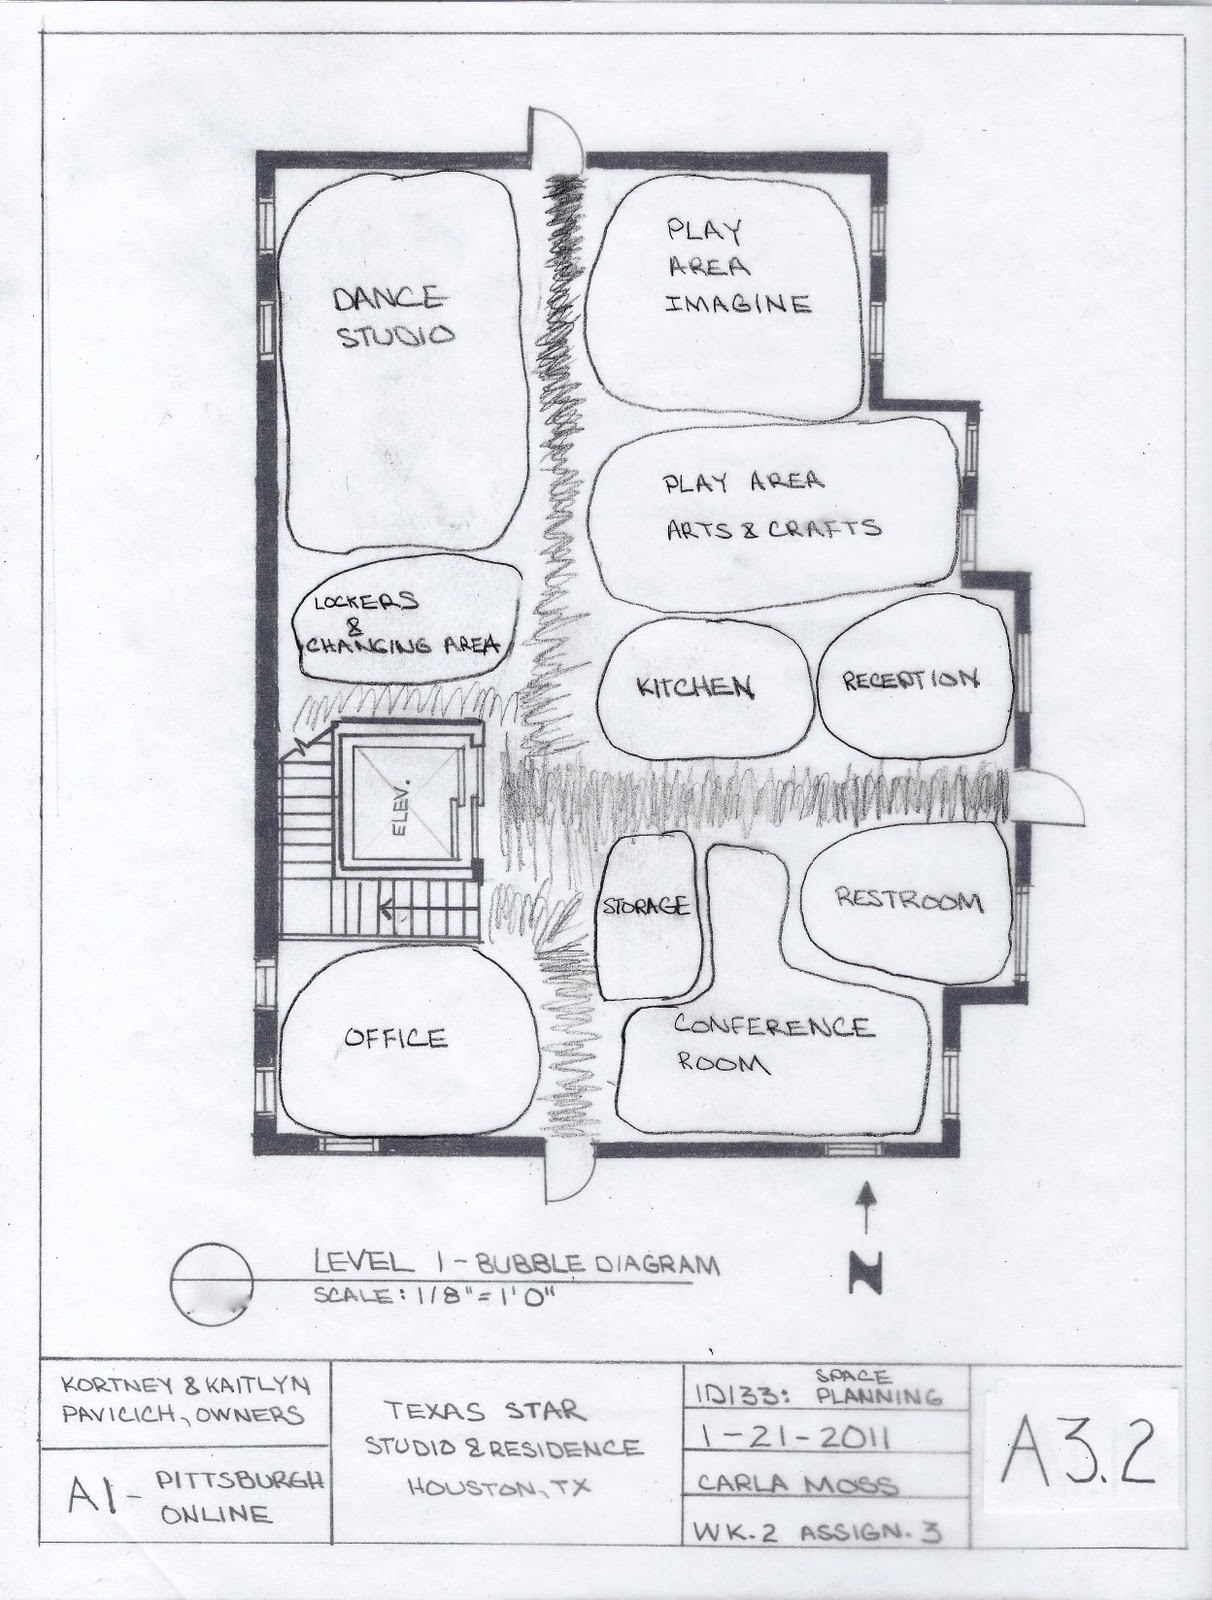 DANCE
STUDIO
PLAY
AREA
IMAGINE
PLAY AREA
ARTS & CRAFTS
LOCKERS
&
CHANGING AREA
KITCHEN
RECEPTION
ELEV.
STORAGE
RESTROOM
OFFICE
CONFERENCE
ROOM
N
LEVEL 1 - BUBBLE DIAGRAM
SCALE: 1/8" = 1'0"
KORTNEY & KAITLYN
PAVICICH, OWNERS
AI - PITTSBURGH
ONLINE
TEXAS STAR
STUDIO & RESIDENCE
HOUSTON, TX
ID133: SPACE
PLANNING
1-21-2011
CARLA MOSS
WK. 2 ASSIGN. 3
A3.2